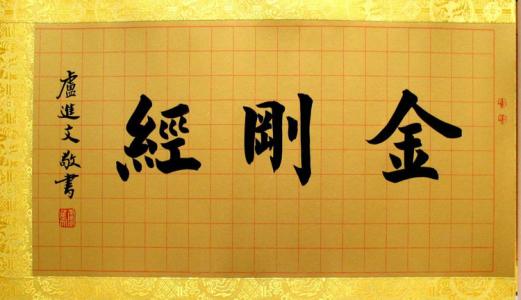 金剛經
盧進文敬書